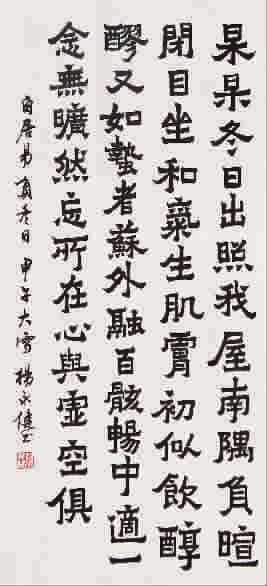 杲杲冬日出照我屋南隅負暄
閉目坐和氣生肌膚初似飲醇
醪又如蟄者蘇外融百骸暢中適一
念無曠然忘所在心與虛空俱
白居易負冬日 甲午大雪 楊